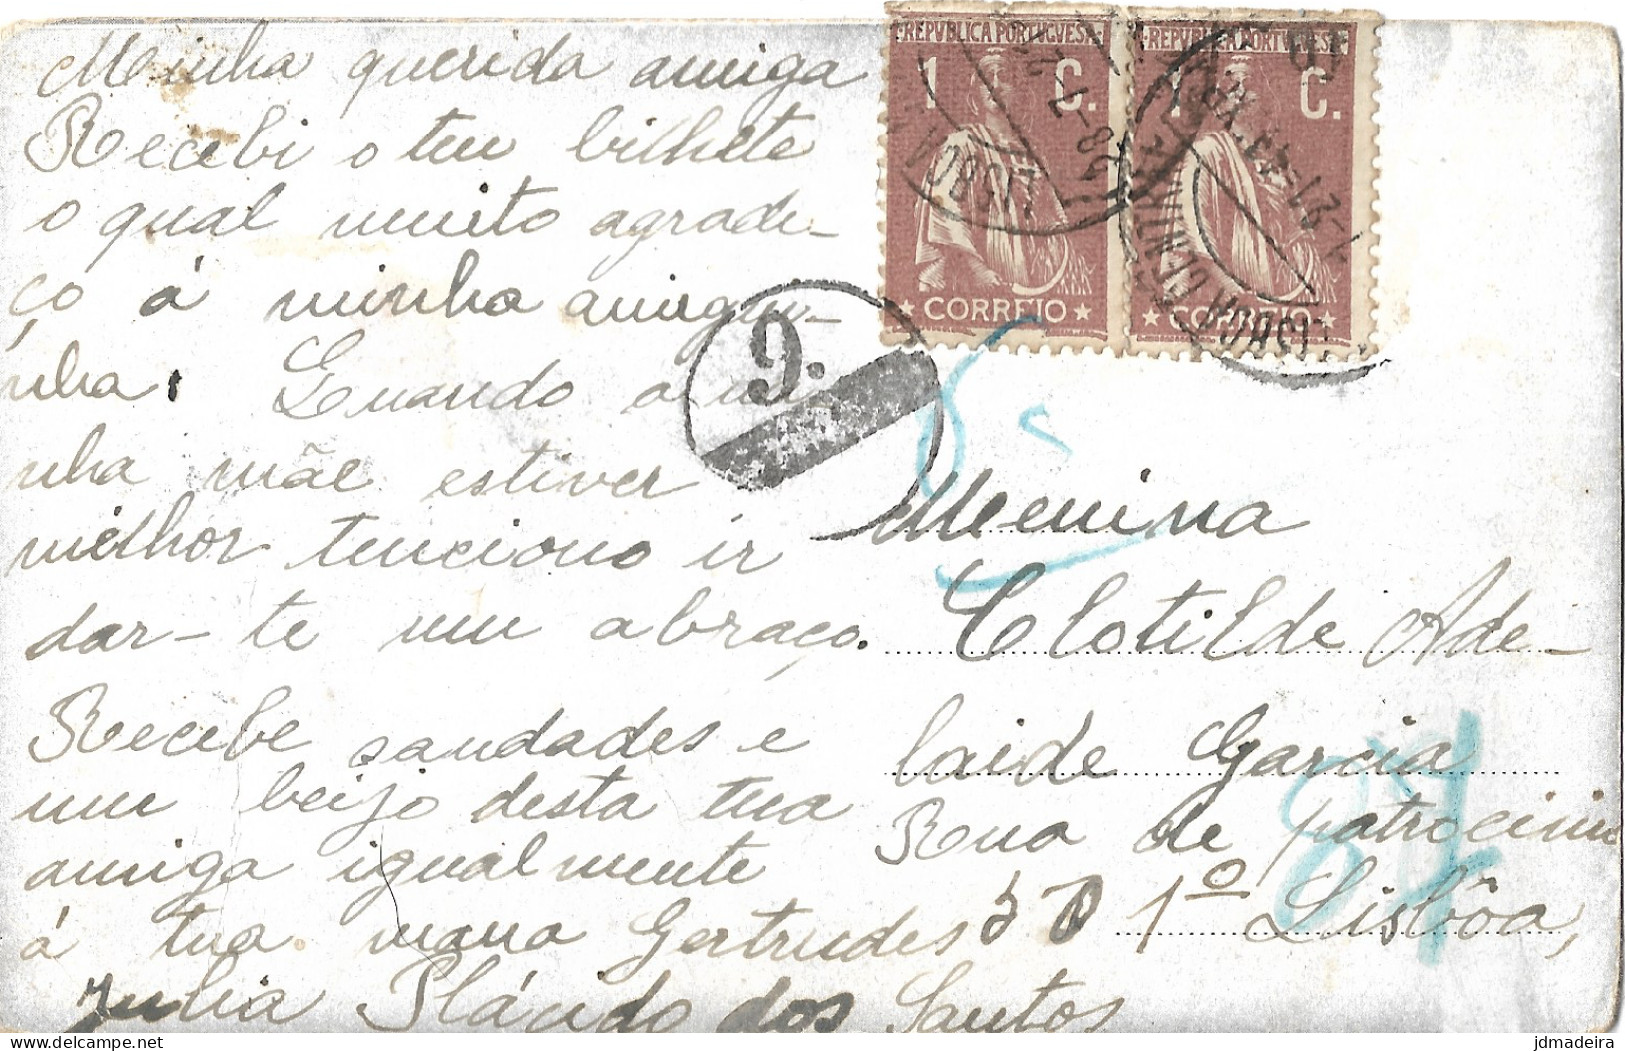 Minha querida amiga
Recebi o teu bilhete
o qual muito agrade-
ço á minha amigui-
nha. Quando a mi
nha mãe estiver
melhor tenciono ir
dar-te um abraço.
Recebe saudades e
um beijo desta tua
amiga igualmente
á tua mana Gertrudes
Julia Plácido dos Santos
REPVBLICA PORTVGVESA
1 C.
CORREIO
REPVBLICA PORTVGVESA
1 C.
CORREIO
LISBOA
LISBOA CENTRAL
9.
Menina
Clotilde Ade-
laide Garcia
Rua de patrocinio
1º Lisbôa,
jdmadeira